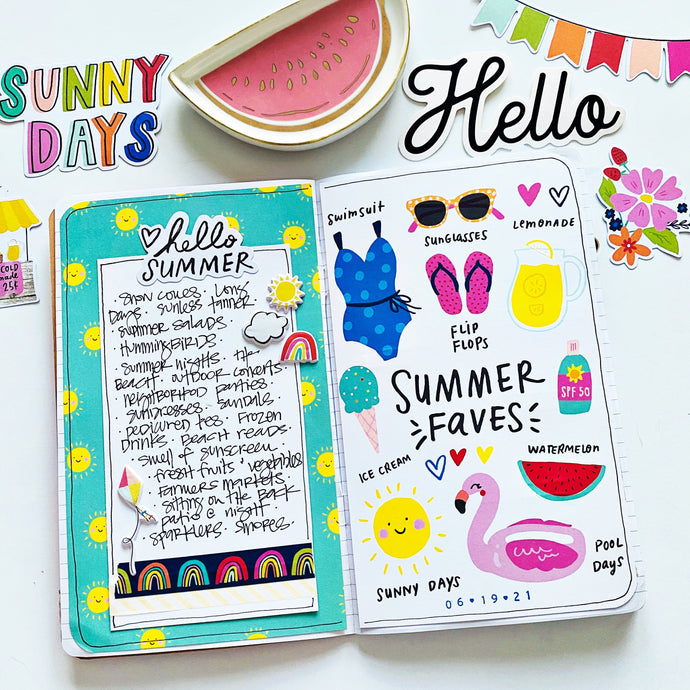 SUNNY
DAYS
Hello
COLD
made
25¢
hello
SUMMER
snow cones. Long
Days. sunless tanner
summer salads.
Hummingbirds.
summer nights. the
Beach. outdoor concerts.
neighborhood parties
sundresses. sandals.
pedicured toes. Frozen
Drinks. Beach reads.
smell of sunscreen.
fresh fruits. vegetables
farmers markets.
sitting on the Back
patio @ night.
sparklers. s'mores.
swimsuit
SUNGLASSES
LEMONADE
FLIP
FLOPS
SUMMER
FAVES
SPF 50
ICE CREAM
WATERMELON
SUNNY DAYS
POOL
DAYS
06•19•21